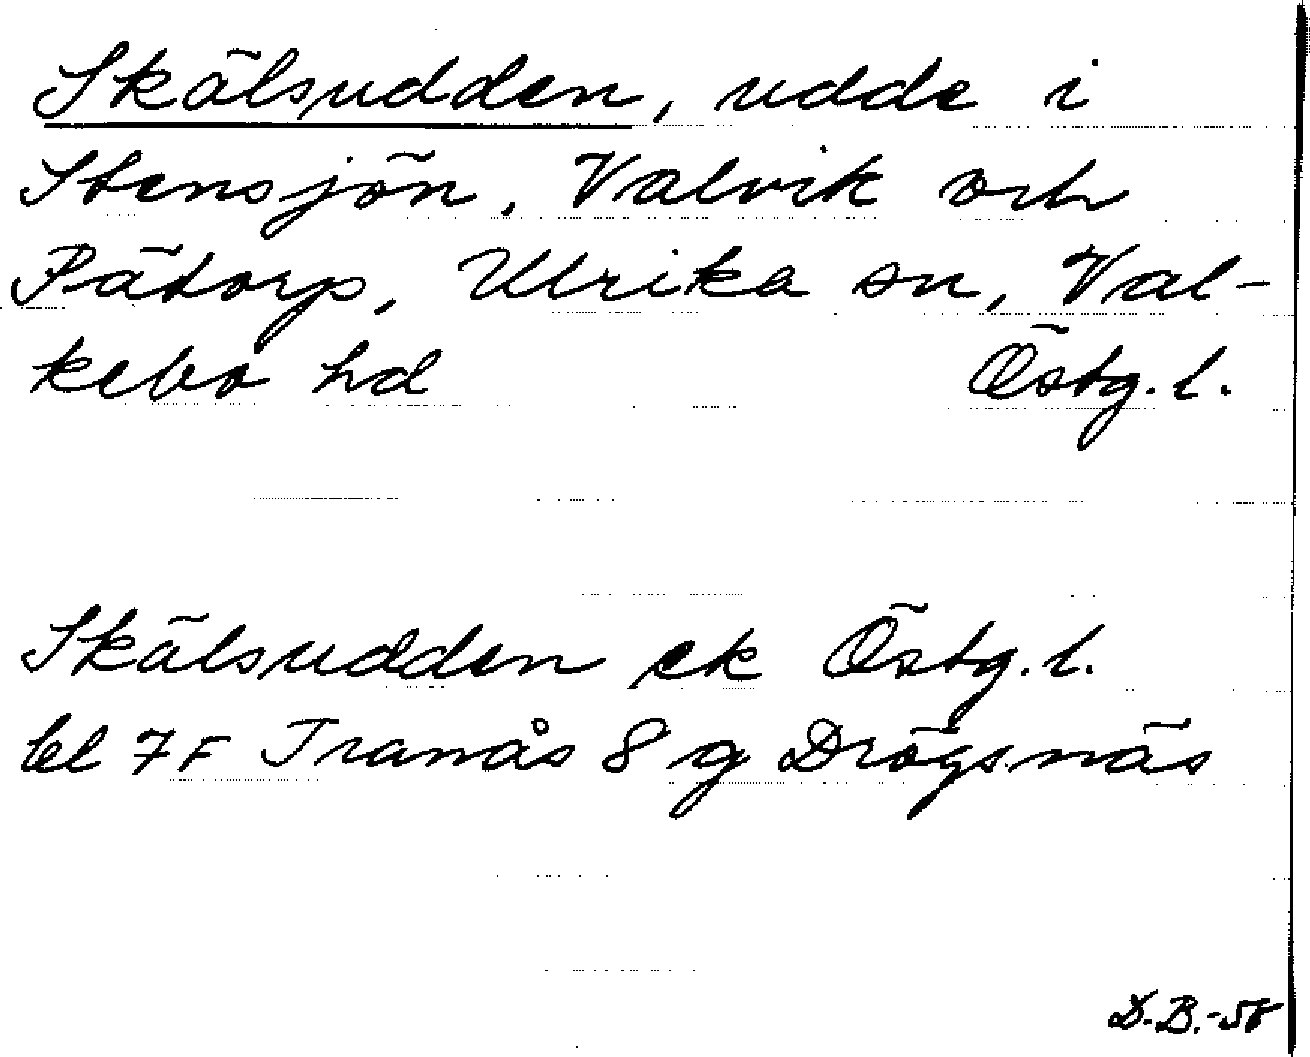 Skälsudden, udde i
Stensjön, Valvik och
Pätorp, Ulrika sn, Val-
kebo hd Östg. l.
Skälsudden ek Östg. l.
bl 7 F Tranås 8 g Drögsnäs
D.B.-58